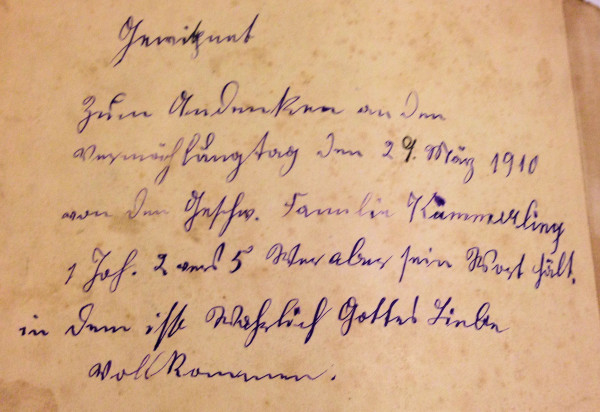 Gewitmet
Zum Andenken an den
Vermählungtag den 29. März 1910
von den Geschw. Familie Kämmerling
1 Joh. 2 vers 5 Wer aber sein Wort hält,
in dem isst Wahrlich Gottes Liebe
Vollkommen.